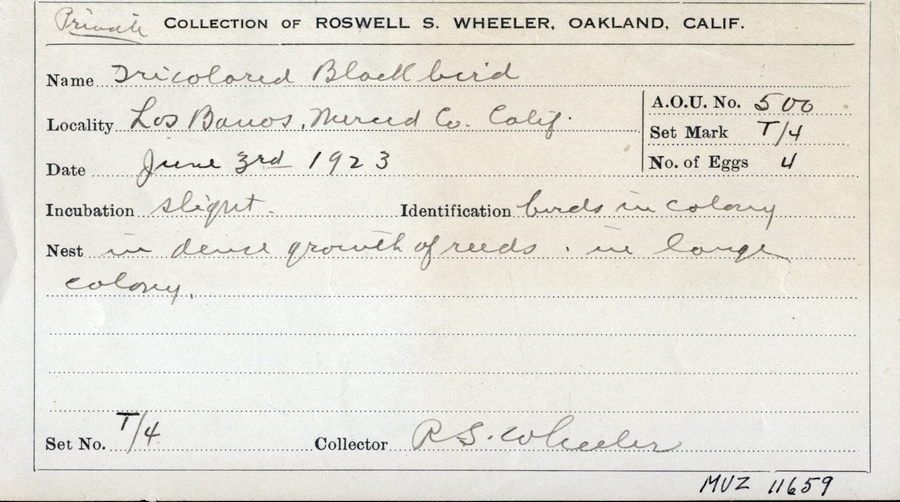 Private COLLECTION OF ROSWELL S. WHEELER, OAKLAND, CALIF.
Name Tricolored Blackbird
A.O.U. No. 500
Locality Los Banos, Merced Co. Calif.
Set Mark T/4
Date June 3rd 1923
No. of Eggs 4
Incubation slight. Identification birds in colony
Nest in dense growth of reeds. in large
colony.
Set No. T/4 Collector R.S. Wheeler
MVZ 11659